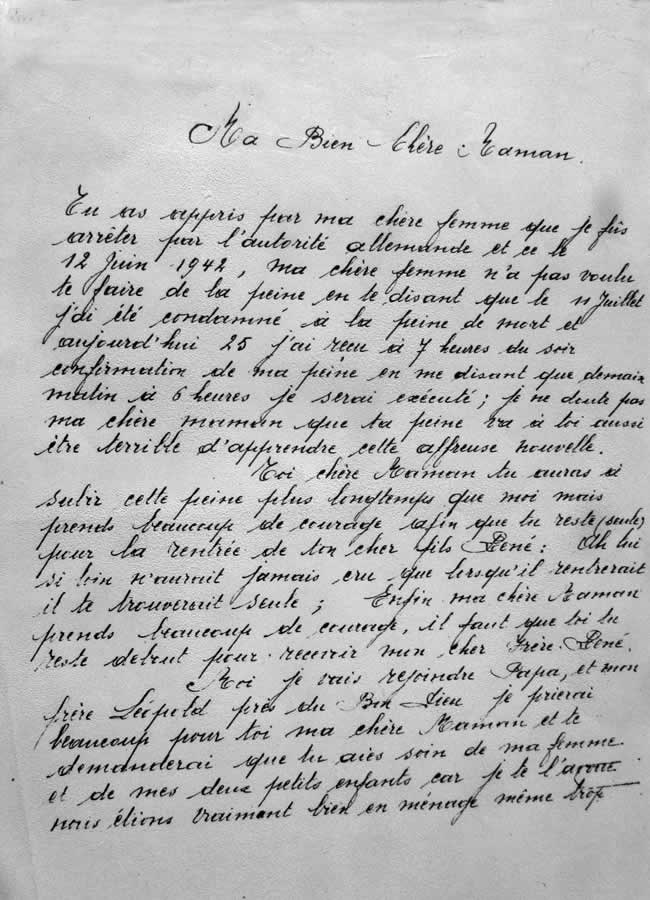 Ma Bien Chère Maman.
Tu as appris par ma chère femme que je fûs
arrêter par l'autorité allemande et ce le
12 Juin 1942, ma chère femme n'a pas voulu
te faire de la peine en te disant que le 11 Juillet
j'ai été condamné à la peine de mort et
aujourd'hui 25 j'ai reçu à 7 heures du soir
confirmation de ma peine en me disant que demain
matin à 6 heures je serai exécuté ; je ne doute pas
ma chère maman que ta peine va à toi aussi
être terrible d'apprendre cette affreuse nouvelle.
Toi chère Maman tu auras à
subir cette peine plus longtemps que moi mais
prends beaucoup de courage afin que tu reste (seule)
pour la rentrée de ton cher fils René : Oh lui
si loin n'aurait jamais cru que lorsqu'il rentrerait
il te trouverait seule ; Enfin ma chère Maman
prends beaucoup de courage, il faut que toi tu
reste debout pour recevoir mon cher Frère René.
Moi je vais rejoindre Papa, et mon
frère Léopold près du Bon Dieu je prierai
beaucoup pour toi ma chère Maman et te
demanderai que tu aies soin de ma femme
et de mes deux petits enfants car je te l'avoue
nous étions vraiment bien en ménage même trop